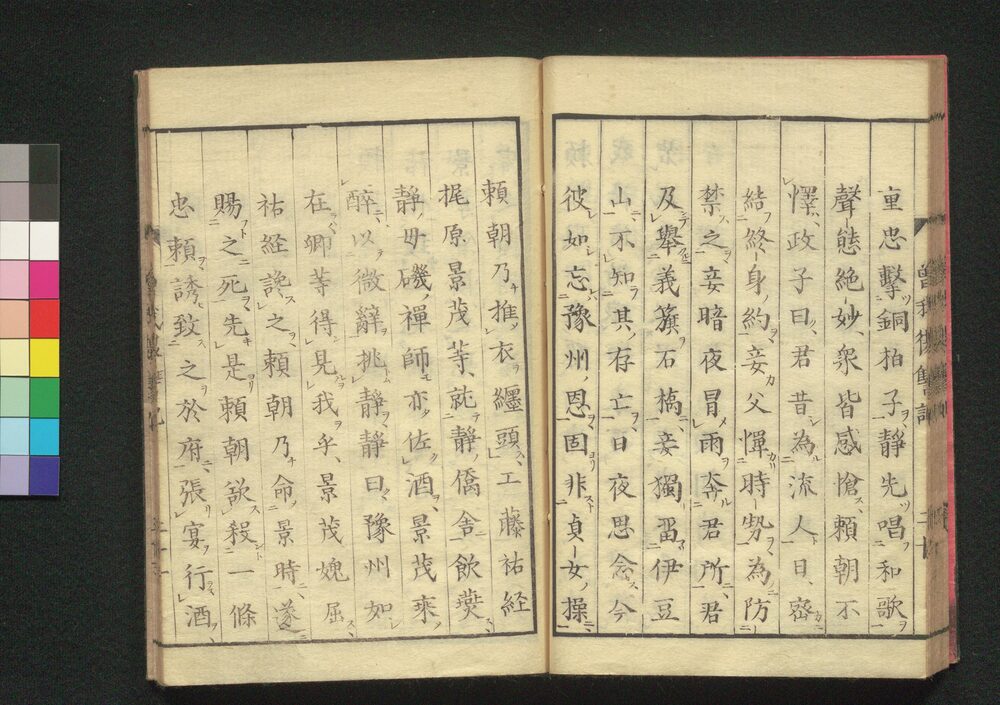 重忠擊銅柏子靜先唱和歌
聲態絶妙衆皆感愴頼朝不
懌政子曰君昔為流人日密
結終身約妾父憚時勢為防
禁之妾暗夜冒雨奔君所君
及舉義籏石橋妾獨畱伊豆
山不知其存亡日夜思念今
彼如忘豫州恩固非貞女操
頼朝乃推衣纒頭工藤祐経
梶原景茂等就靜僑舎飲燕
靜毋磯禅師亦佐酒景茂乘
醉以微辭挑靜靜曰豫州如
在卿等得見我乎景茂媿屈
祐経讒之頼朝乃命景時遂
賜之死先是頼朝欲殺一條
忠頼誘致之於府張宴行酒